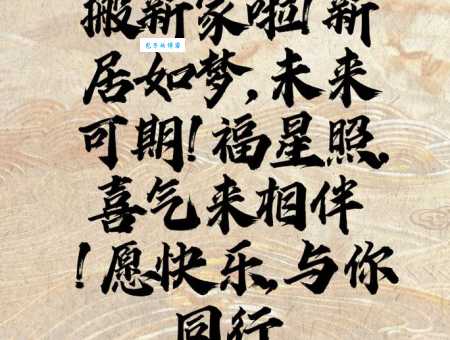 搬新家啦!新
居如梦,未来
可期!福星照,
喜气来相伴
!愿快乐,与你
同行